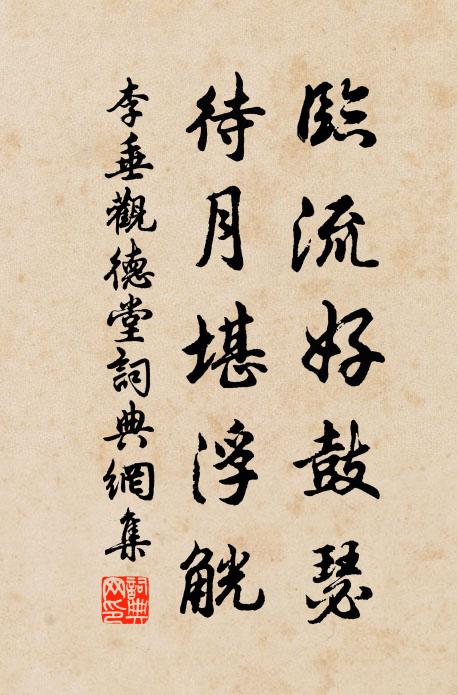 臨流好鼓瑟
待月堪浮觥
李垂觀德堂詞典網集
詞典網印